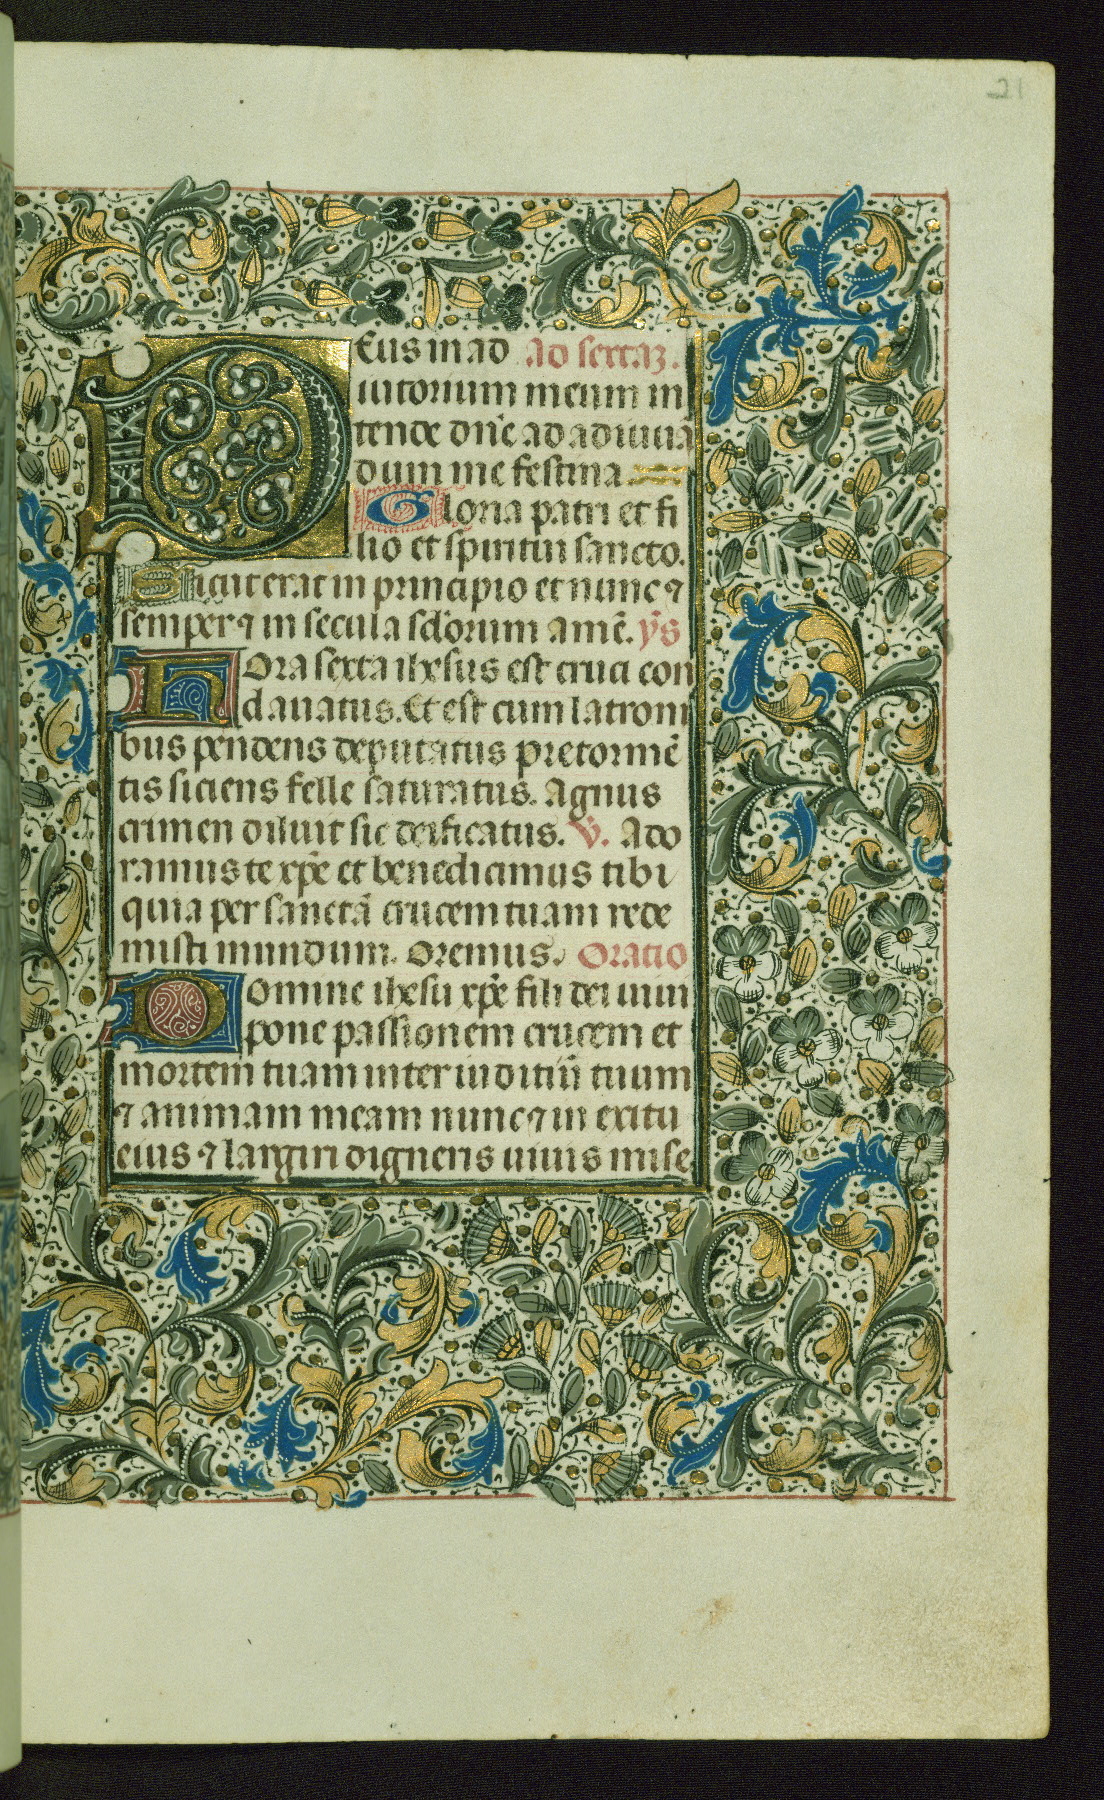 21
Deus in ad ad sextaꝫ.
iutorium meum in
tende dn̄e ad adiuua
dum me festina
Gloria patri et fi
lio et spiritui sancto.
Sicut erat in principio et nunc ⁊
semper ⁊ in secula scl̄orum amē. ym̄s
Hora sexta ihesus est cruci con
clauatus. Et est cum latroni
bus pendens deputatus pre tormē
tis siciens felle saturatus. Agnus
crimen diluit sic deificatus. V̄. Ado
ramus te xp̄e et benedicimus tibi
quia per sanctā crucem tuam rede
misti mundum. Oremus. Oratio
Domine ihesu xp̄e fili dei uiui
pone passionem crucem et
mortem tuam inter iuditiū tuum
⁊ animam meam nunc ⁊ in exitu
eius ⁊ largiri digneris uiuis mise